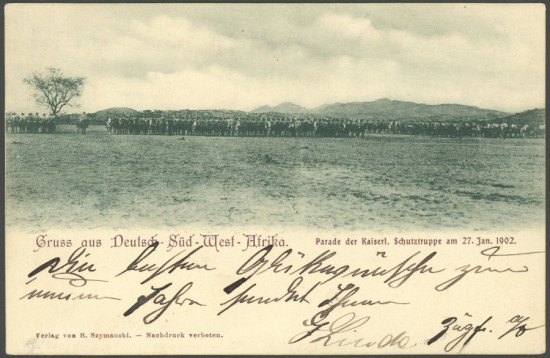 Gruss aus Deutsch-Süd-West-Afrika.
Parade der Kaiserl. Schutztruppe am 27. Jan. 1902.
Die besten Glückwünsche zum
neuen Jahre sendet Ihnen
Verlag von H. Szymanski. — Nachdruck verboten.